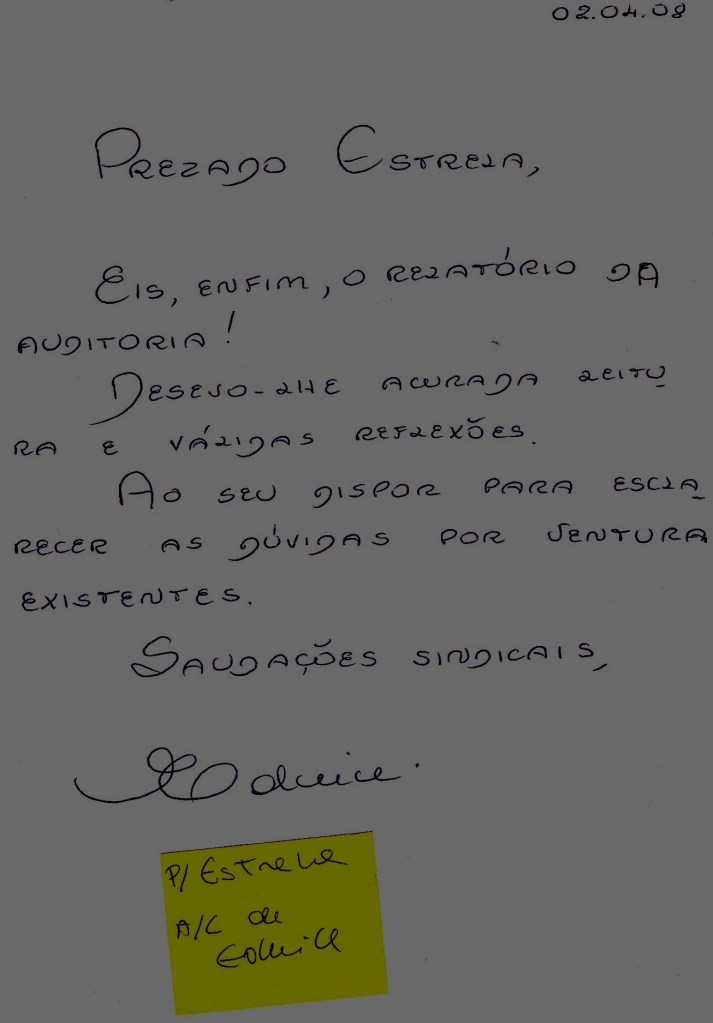 02.04.08
PREZADO ESTRELA,
EIS, ENFIM, O RELATÓRIO DA
AUDITORIA!
DESEJO-LHE ACURADA LEITU
RA E VÁLIDAS REFLEXÕES.
AO SEU DISPOR PARA ESCLA
RECER AS DÚVIDAS POR VENTURA
EXISTENTES.
SAUDAÇÕES SINDICAIS,
P/ Estrela
A/C de